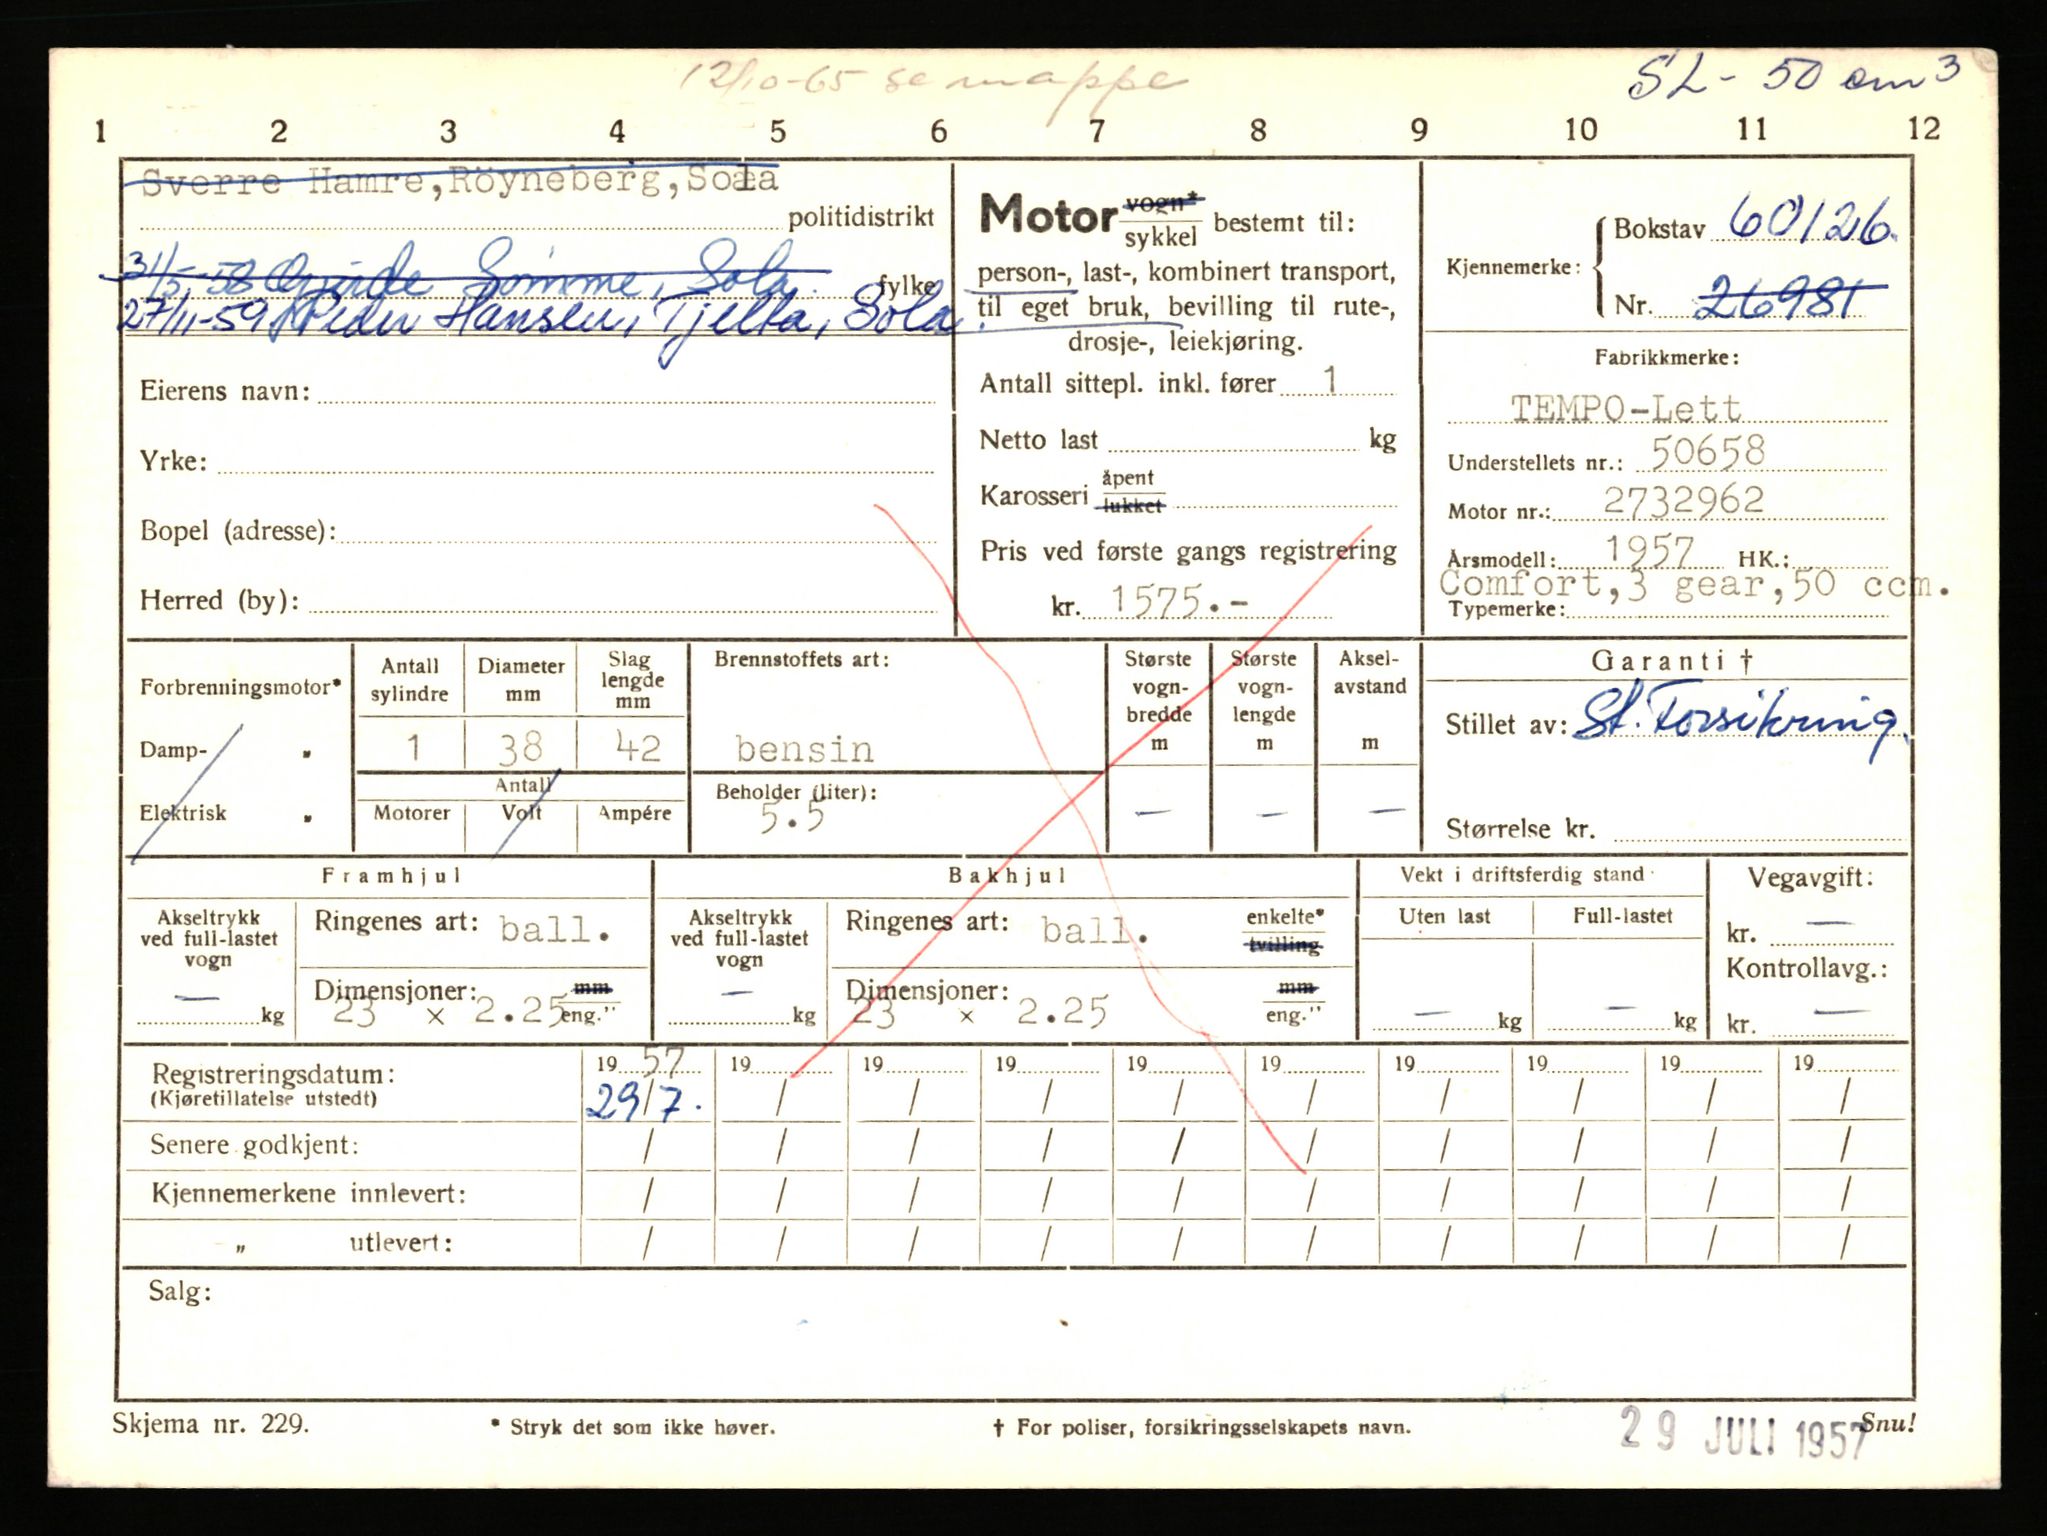 12/10-65 se mappe
SL - 50 cm3
1 2 3 4 5 6 7 8 9 10 11 12
Sverre Hamre, Röyneberg, Sola
politidistrikt
31/5-58 Gjerde Sömme, Sola. fylke
27/11-59 Peder Hansen, Tjelta, Sola.
Eierens navn:
Yrke:
Bopel (adresse):
Herred (by):
Motor vogn* sykkel bestemt til:
person-, last-, kombinert transport,
til eget bruk, bevilling til rute-,
drosje-, leiekjøring.
Antall sittepl. inkl. fører 1
Netto last kg
Karosseri åpent lukket
Pris ved første gangs registrering
kr. 1575.-
Kjennemerke: Bokstav 60126.
Nr. 26981
Fabrikkmerke:
TEMPO-Lett
Understellets nr.: 50658
Motor nr.: 2732962
Årsmodell: 1957 HK.:
Comfort, 3 gear, 50 ccm.
Typemerke:
Forbrenningsmotor*
Damp- „
Elektrisk „
Antall sylindre 1
Diameter mm 38
Slag lengde mm 42
Antall
Motorer Volt Ampére
Brennstoffets art:
bensin
Beholder (liter):
5.5
Største vogn-bredde m —
Største vogn-lengde m —
Aksel-avstand m —
Garanti †
Stillet av: St. Forsikring.
Størrelse kr.
Framhjul
Akseltrykk ved full-lastet vogn — kg
Ringenes art: ball.
Dimensjoner: 23 x 2.25 mm eng."
Bakhjul
Akseltrykk ved full-lastet vogn — kg
Ringenes art: ball. enkelte* tvilling
Dimensjoner: 23 x 2.25 mm eng."
Vekt i driftsferdig stand
Uten last — kg
Full-lastet — kg
Vegavgift:
kr. —
Kontrollavg.:
kr. —
Registreringsdatum: 19 57 19 19 19 19 19 19 19 19 19
(Kjøretillatelse utstedt) 29/7. / / / / / / / / /
Senere godkjent: / / / / / / / / / /
Kjennemerkene innlevert: / / / / / / / / / /
„ utlevert: / / / / / / / / / /
Salg:
Skjema nr. 229.
* Stryk det som ikke høver.
† For poliser, forsikringsselskapets navn.
29 JULI 1957
Snu!